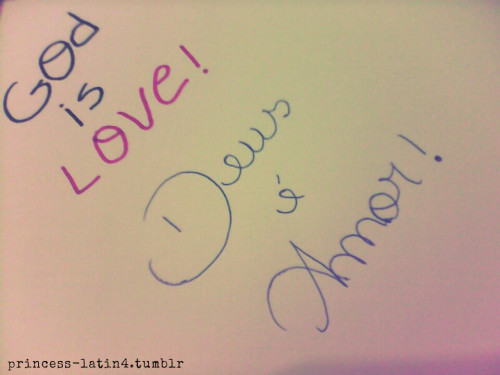 God
is
LOVE!
Deus
é
Amor!
princess-latin4.tumblr